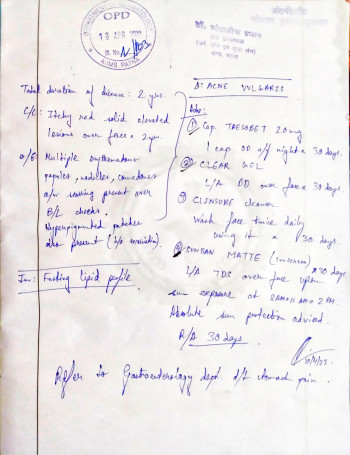 OPD
19 APR
AIIMS, PATNA
Total duration of disease: 2 yrs.
C/C: Itchy red solid elevated
lesions over face x 2 yrs.
o/E: Multiple erythematous
papules, nodules, comedones
scarring present over
B/L cheeks.
Hyperpigmented patches
also present
Inv: Fasting lipid profile
Δ: ACNE VULGARIS
Adv:
① Cap. TRESOBET 20 mg
1 cap OD night x 30 days
② CLEAR GEL
L/A OD over face x 30 days
③ CLINSURE cleanser
wash face twice daily
using it x 30 days.
④ SUNBAN MATTE (sunscreen)
L/A TDS over face upon x 30 days
sun exposure at 8AM 11AM 2 PM.
Absolute sun protection advised.
R/A 30 days
Refer to Gastroenterology dept. stomach pain.